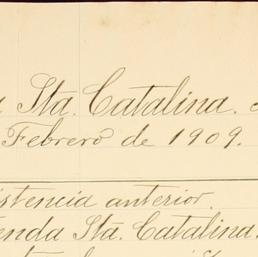 Sta. Catalina.
Febrero de 1909.
istencia anterior.
enda Sta. Catalina.